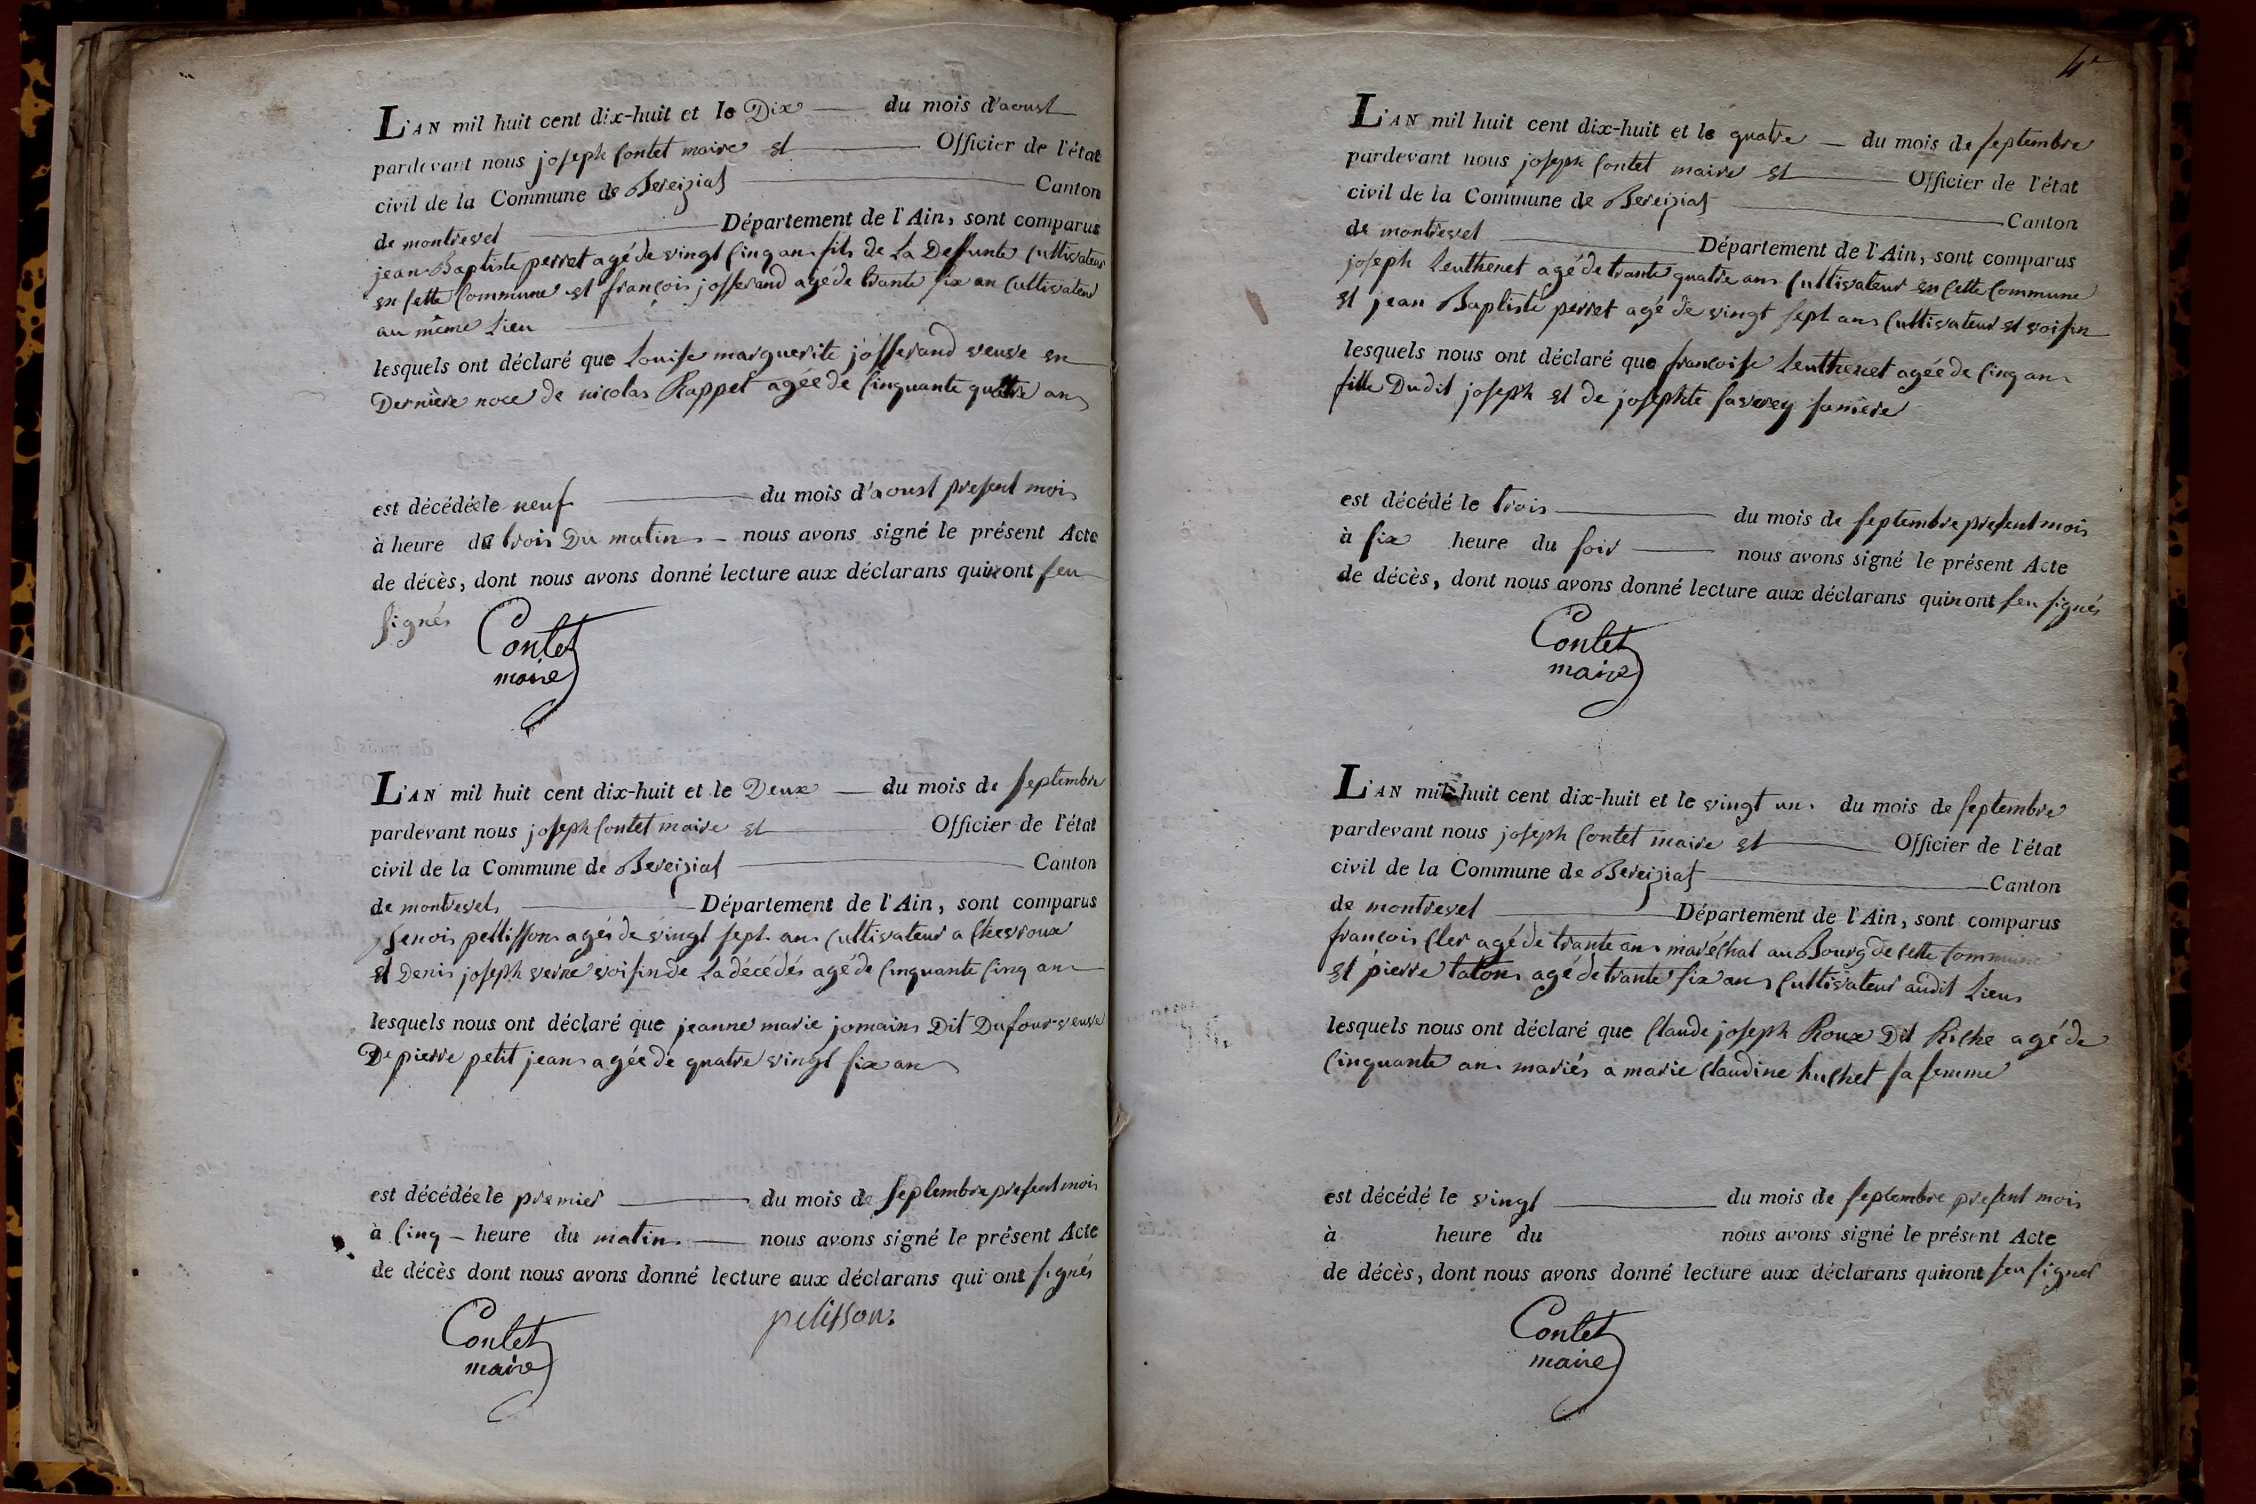 L'AN mil huit cent dix-huit et le Dix du mois d'aoust
pardevant nous joseph Contet maire et Officier de l'état
civil de la Commune de Bereiziat Canton
de montrevel Département de l'Ain, sont comparus
jean Baptiste perret agé de vingt cinq ans fils de La Deffunte Cultivateur
en cette Commune et françois josserand agé de trante six an Cultivateur
au même Lieu
lesquels ont déclaré que Louise marguerite josserand veuve en
Dernière noce de nicolas Rappet agée de Cinquante quatre ans
est décédée le neuf du mois d'aoust present mois
à heure de trois Du matin nous avons signé le présent Acte
de décès, dont nous avons donné lecture aux déclarans qui n'ont seu
signés
Contet
maire
L'AN mil huit cent dix-huit et le Deux du mois de septembre
pardevant nous joseph Contet maire et Officier de l'état
civil de la Commune de Bereiziat Canton
de montrevel Département de l'Ain, sont comparus
benois pellisson agés de vingt sept ans Cultivateur a Chevroux
et Denis joseph verne voisin de La décédés agé de Cinquante Cinq ans
lesquels nous ont déclaré que jeanne marie jomain Dit Dufour veuve
De pierre petit jean agée de quatre vingt six ans
est décédée le premier du mois de septembre present mois
à Cinq heure du matin nous avons signé le présent Acte
de décès dont nous avons donné lecture aux déclarans qui ont signés
pelisson
Contet
maire
4e
L'AN mil huit cent dix-huit et le quatre du mois de septembre
pardevant nous joseph Contet maire et Officier de l'état
civil de la Commune de Bereiziat Canton
de montrevel Département de l'Ain, sont comparus
joseph Leuthenet agé de trante quatre ans Cultivateur en Cette Commune
et jean Baptiste perret agé de vingt sept ans Cultivateur et voisin
lesquels nous ont déclaré que françoise Leuthenet agée de Cinq ans
fille Dudit joseph et de josephte faverey sa mere
est décédé le trois du mois de septembre present mois
à six heure du soir nous avons signé le présent Acte
de décès, dont nous avons donné lecture aux déclarans qui n'ont seu signés
Contet
maire
L'AN mil huit cent dix-huit et le vingt un du mois de septembre
pardevant nous joseph Contet maire et Officier de l'état
civil de la Commune de Bereiziat Canton
de montrevel Département de l'Ain, sont comparus
françois Cler agé de trante ans maréchal au Bourg de cette Commune
et pierre taton agé de trante six ans Cultivateur audit Lieu
lesquels nous ont déclaré que Claude joseph Roux Dit Riche agé de
Cinquante ans mariés a marie Claudine huchet sa femme
est décédé le vingt du mois de septembre present mois
à heure du nous avons signé le présent Acte
de décès, dont nous avons donné lecture aux déclarans qui n'ont seu signer
Contet
maire